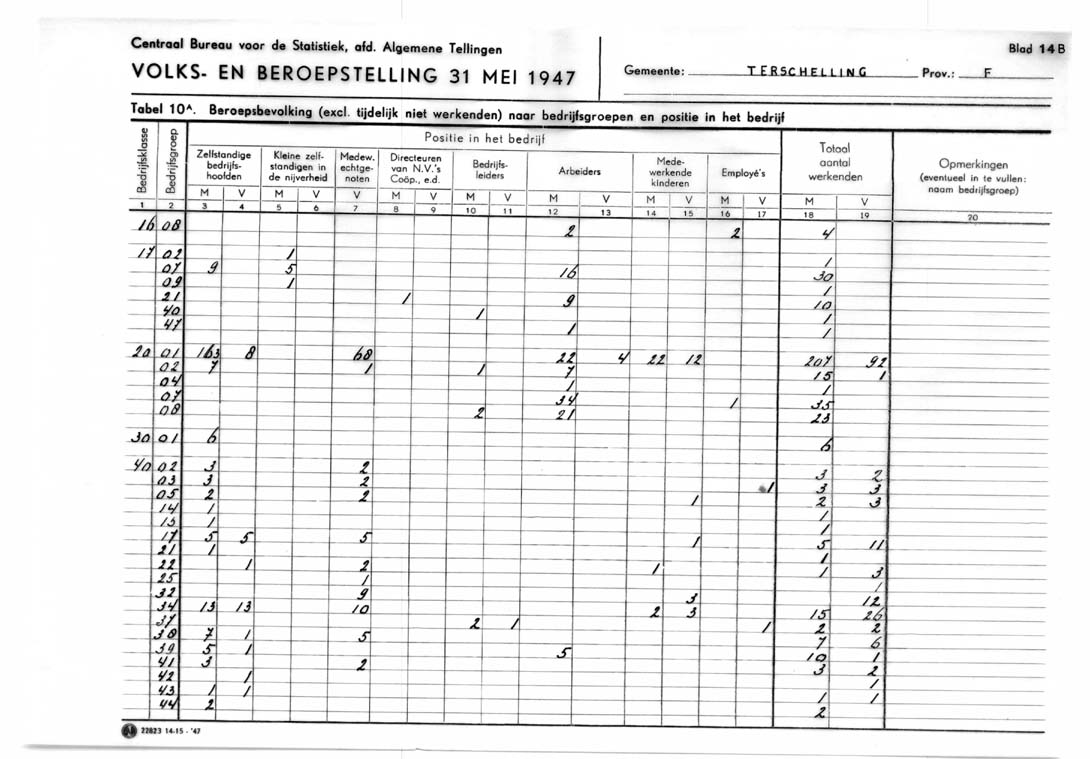 Centraal Bureau voor de Statistiek, afd. Algemene Tellingen
VOLKS- EN BEROEPSTELLING 31 MEI 1947
Blad 14 B
Gemeente: TERSCHELLING Prov.: F
Tabel 10^A. Beroepsbevolking (excl. tijdelijk niet werkenden) naar bedrijfsgroepen en positie in het bedrijf
Bedrijfsklasse
Bedrijfsgroep
Positie in het bedrijf
Zelfstandige bedrijfs-hoofden
Kleine zelf-standigen in de nijverheid
Medew. echtge-noten
Directeuren van N.V.'s Coöp., e.d.
Bedrijfs-leiders
Arbeiders
Mede-werkende kinderen
Employé's
Totaal aantal werkenden
Opmerkingen (eventueel in te vullen: naam bedrijfsgroep)
M V M V V M V M V M V M V M V M V
1 2 3 4 5 6 7 8 9 10 11 12 13 14 15 16 17 18 19 20
16 08 2 2 4
17 02 1 1
07 9 5 16 30
09 1 1
21 1 9 10
40 1 1
47 1 1
20 01 163 8 68 22 4 22 12 207 92
02 7 1 1 7 15 1
04 1 1
07 34 1 35
08 2 21 23
30 01 6 6
40 02 3 2 3 2
03 3 2 1 3 3
05 2 2 1 2 3
14 1 1
15 1 1
17 5 5 5 1 5 11
21 1 1
22 1 2 1 1 3
25 1 1
32 9 3 12
34 13 13 10 2 3 15 26
37 2 1 1 2 2
38 7 1 5 7 6
39 5 1 5 10 1
41 3 2 3 2
42 1 1
43 1 1 1 1
44 2 2
22823 14-15 - '47